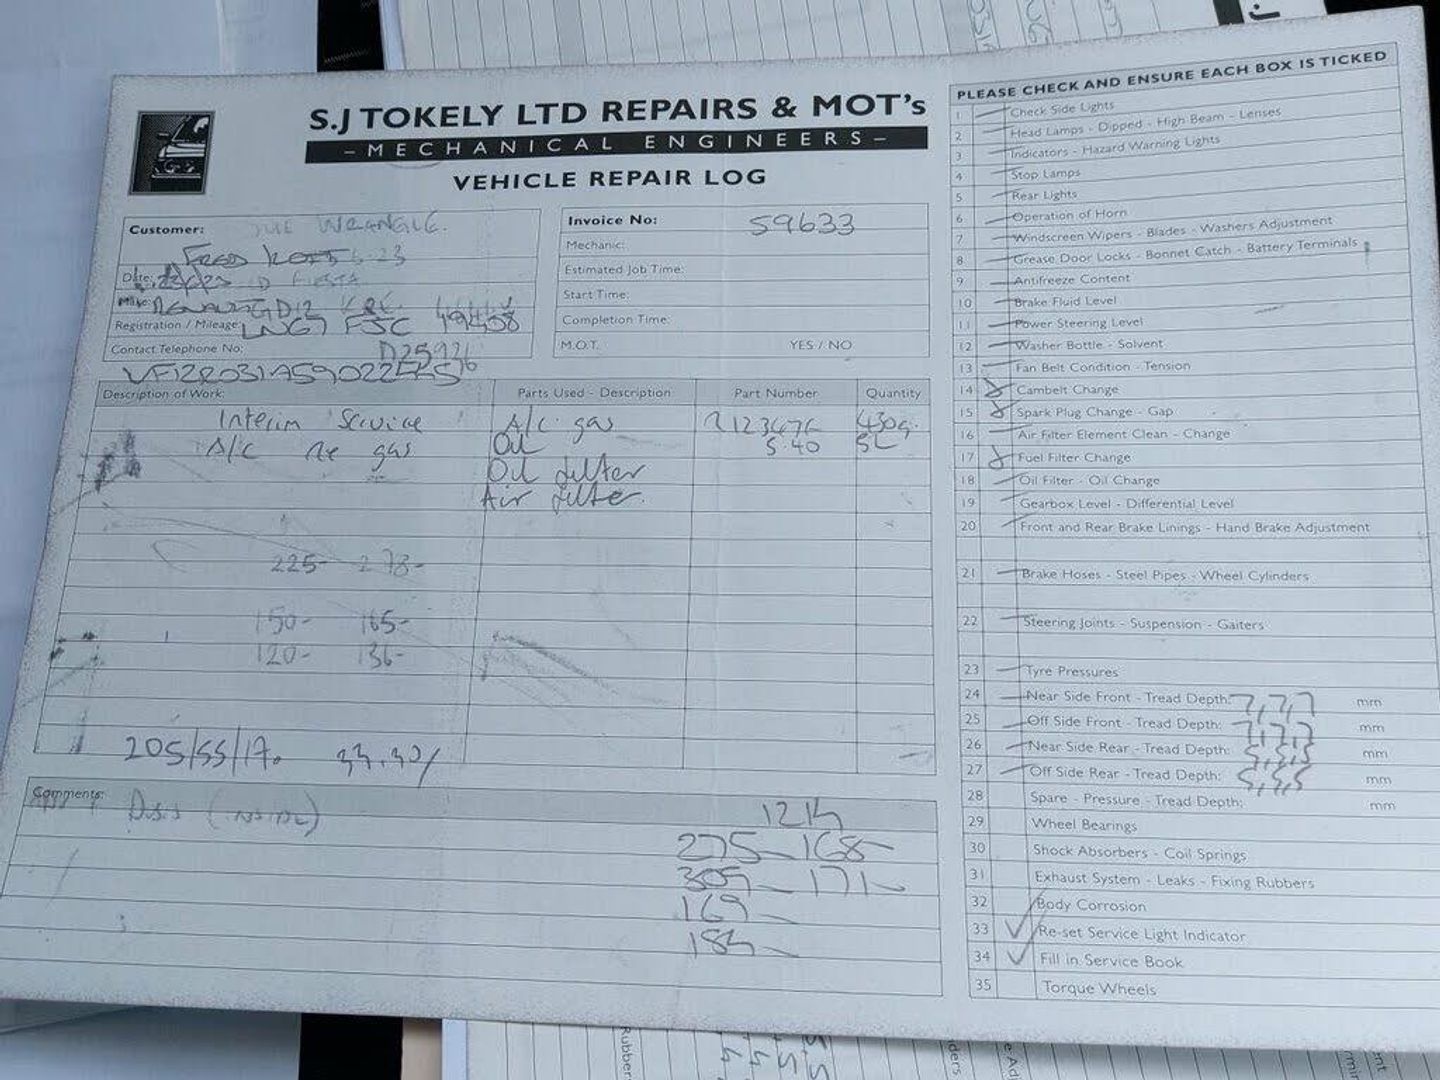 S.J TOKELY LTD REPAIRS & MOT's
– MECHANICAL ENGINEERS –
VEHICLE REPAIR LOG
Customer: WRANGLE.
Date:
Make:
Registration / Mileage: FSC
Contact Telephone No:
Invoice No: 59633
Mechanic:
Estimated Job Time:
Start Time:
Completion Time:
M.O.T. YES / NO
Description of Work: Parts Used - Description Part Number Quantity
Interim Service A/c gas 430g.
A/c re gas Oil 5.40 5L
Oil filter
Air filter.
225- 278-
150- 165-
120- 136-
205/55/17.
Comments:
12K
275- 168-
305- 171-
169-
184-
PLEASE CHECK AND ENSURE EACH BOX IS TICKED
1 Check Side Lights
2 Head Lamps - Dipped - High Beam - Lenses
3 Indicators - Hazard Warning Lights
4 Stop Lamps
5 Rear Lights
6 Operation of Horn
7 Windscreen Wipers - Blades - Washers Adjustment
8 Grease Door Locks - Bonnet Catch - Battery Terminals
9 Antifreeze Content
10 Brake Fluid Level
11 Power Steering Level
12 Washer Bottle - Solvent
13 Fan Belt Condition - Tension
14 Cambelt Change
15 Spark Plug Change - Gap
16 Air Filter Element Clean - Change
17 Fuel Filter Change
18 Oil Filter - Oil Change
19 Gearbox Level - Differential Level
20 Front and Rear Brake Linings - Hand Brake Adjustment
21 Brake Hoses - Steel Pipes - Wheel Cylinders
22 Steering Joints - Suspension - Gaiters
23 Tyre Pressures
24 Near Side Front - Tread Depth: 7,7,7 mm
25 Off Side Front - Tread Depth: 7,7,7 mm
26 Near Side Rear - Tread Depth: 5,5,5 mm
27 Off Side Rear - Tread Depth: 5,5,5 mm
28 Spare - Pressure - Tread Depth: mm
29 Wheel Bearings
30 Shock Absorbers - Coil Springs
31 Exhaust System - Leaks - Fixing Rubbers
32 Body Corrosion
33 Re-set Service Light Indicator
34 Fill in Service Book
35 Torque Wheels